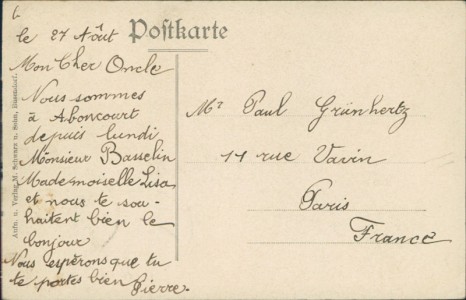 le 27 Août
Postkarte
Mon Cher Oncle
Nous sommes
à Aboncourt
depuis lundi
Monsieur Basselin
Mademoiselle Lisa
et nous te sou-
haitent bien le
bonjour
Nous espérons que tu
te portes bien Pierre.
Mr Paul Grünhertz
14 rue Vavin
Paris
France
Aufn. u. Verlag M. Scheuer u. Sohn, Düsseldorf.